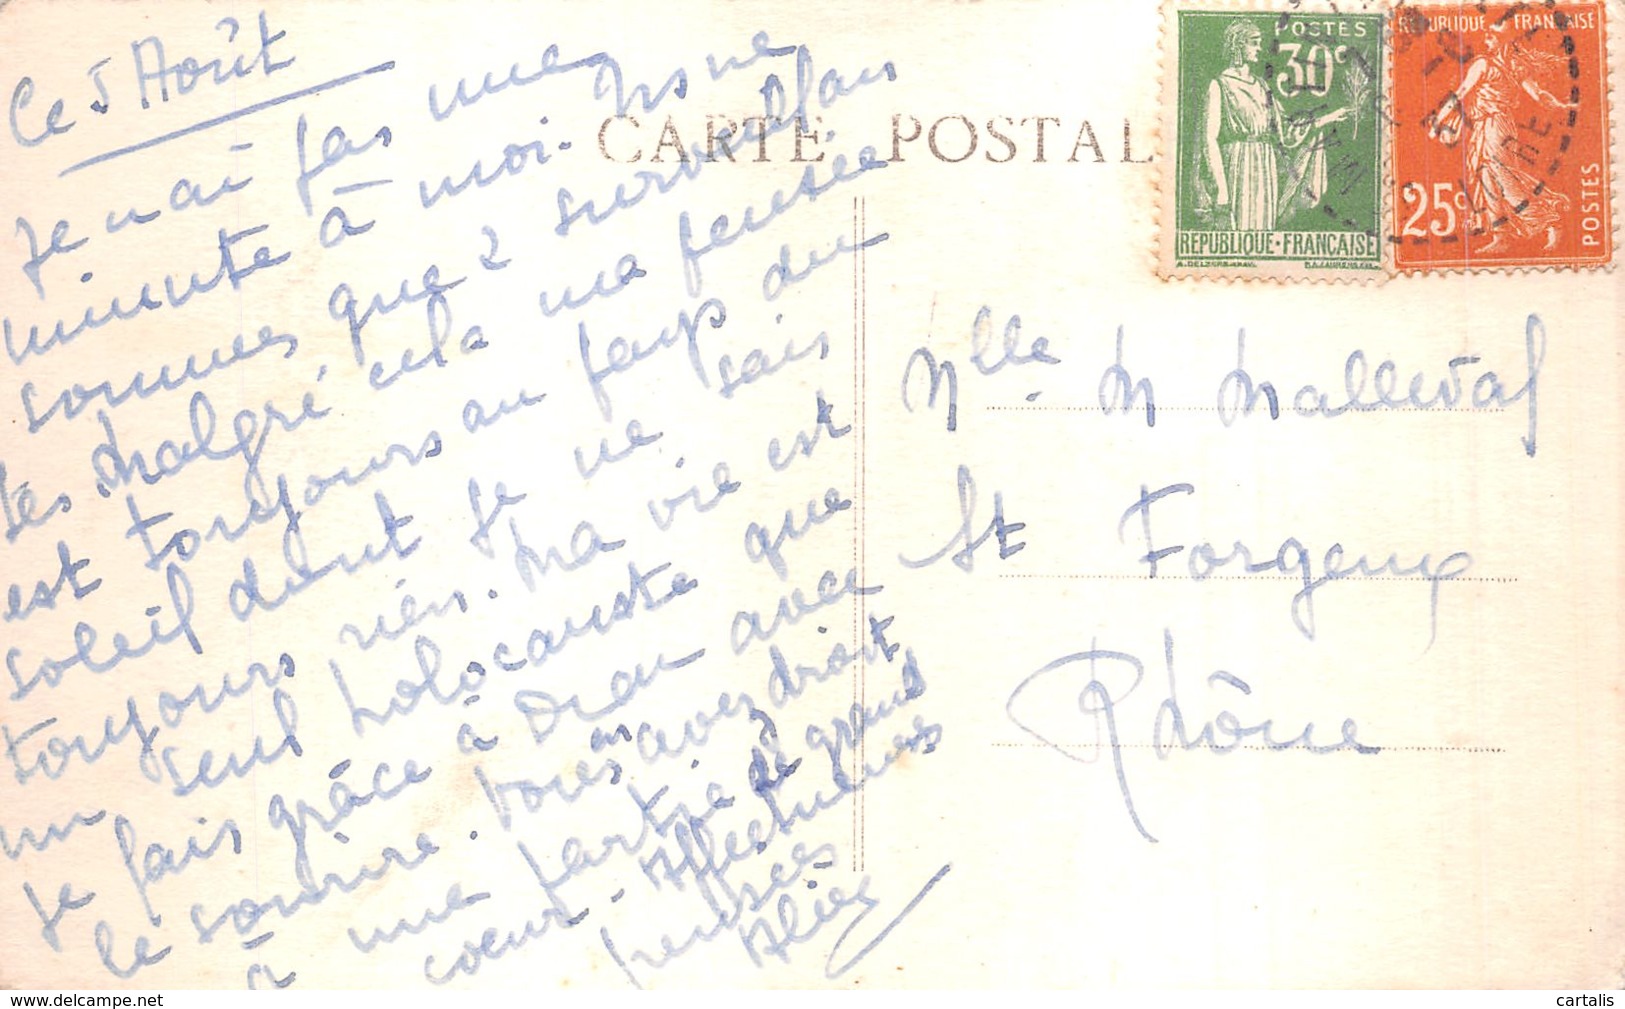 Ce 5 Août
Je n'ai pas une
minute à moi. Ns ne
sommes que 2 surveillan
tes. Malgré cela ma pensée
est toujours au pays du
soleil dont je ne sais
toujours rien. Ma vie est
un seul holocauste que
je fais grâce à Dieu avec
le sourire. Vous avez droit
à une partie de grand
coeur. Affectueuses
pensées
CARTE POSTAL
POSTES
30c
REPUBLIQUE·FRANÇAISE
REPUBLIQUE FRANÇAISE
25c
POSTES
37
LOIRE
Mlle. M Malleval
St Forgeux
Rhône
delcampe.net
cartalis